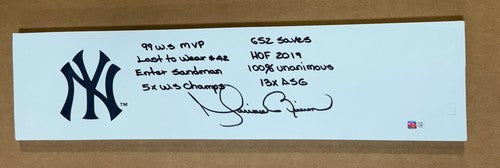 NY
TM
99 W.S MVP
Last to Wear #42
Enter Sandman
5x W.S Champs
652 Saves
HOF 2019
100% unanimous
13x ASG
Mariano Rivera